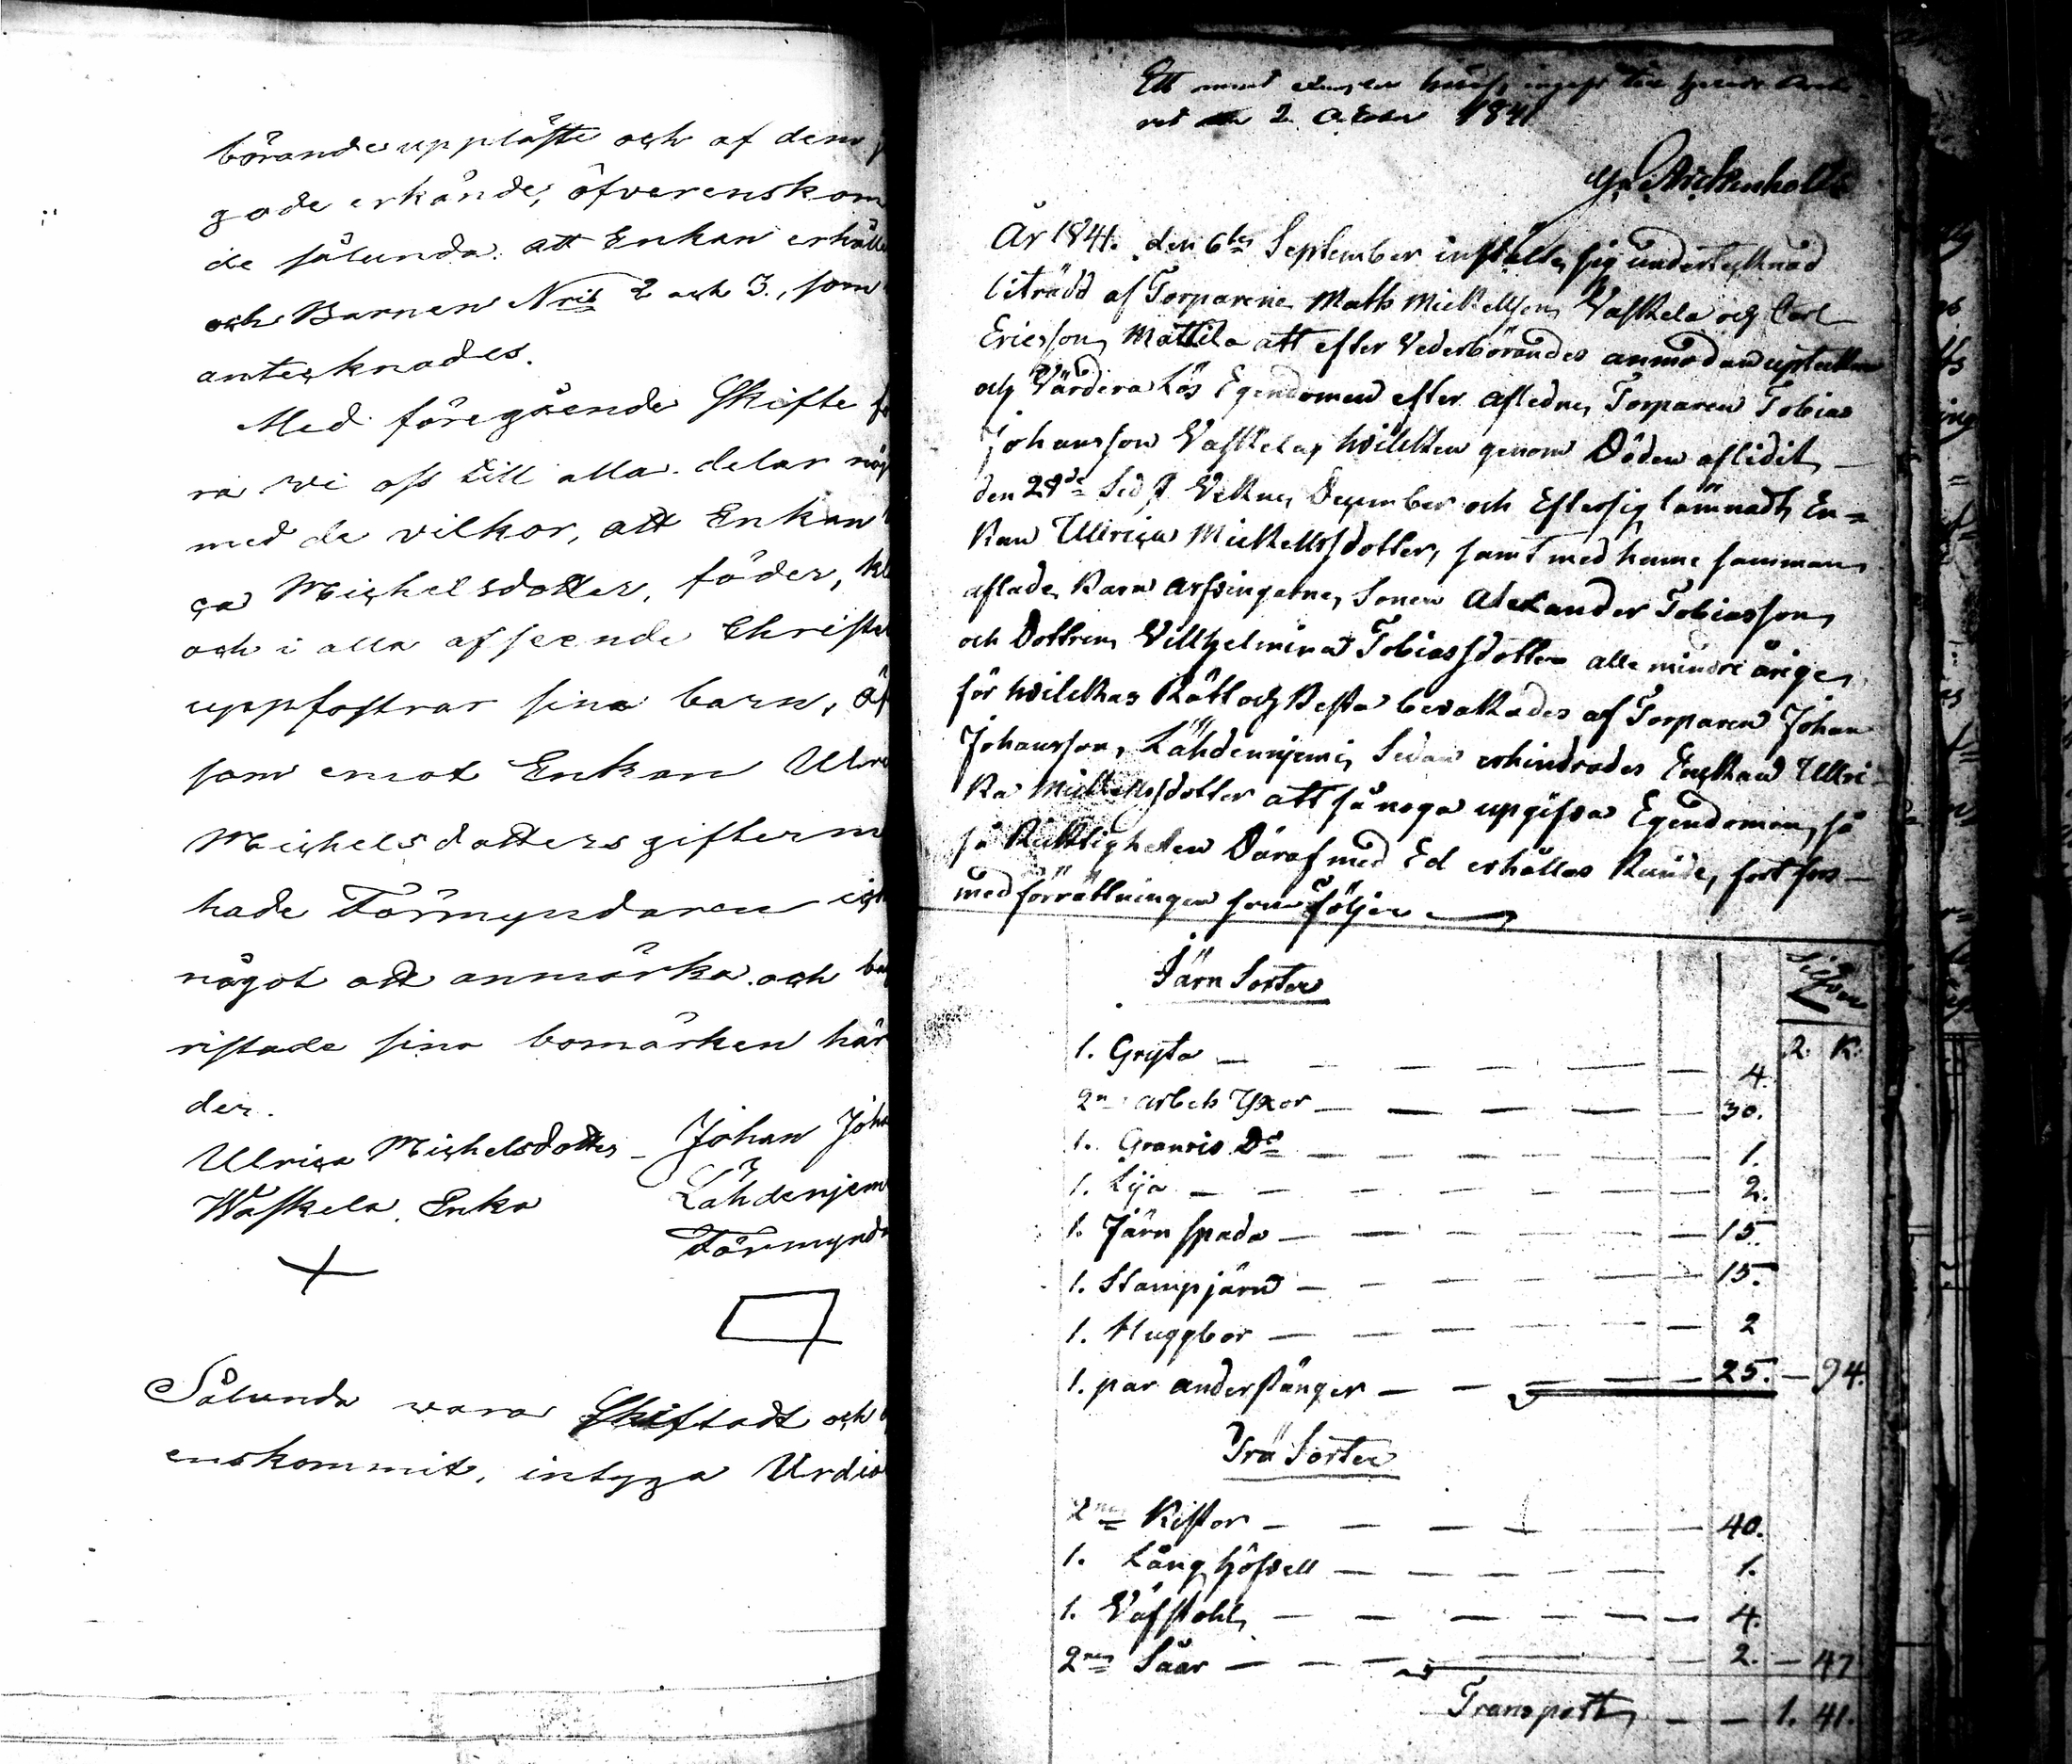 börande uppläste och af dem
gode erkände, öfverenskom
de sålunda: att Enkan erhålle
och Barnen Nris 2 och 3., som
antecknades.
Med föregående Skifte
ra wi oss till alla delar nöj
med de vilkor, att Enkan
ca Michelsdotter, föder, kl
och i alla afseende Christe
uppfostrar sina barn,
som emot Enkan Ulri
Michelsdotters gifterm
hade Förmyndaren
något att anmärka och
ristade sina bomärken här
der.
Ulrica Michelsdotter
Waskela Enka
Johan Joha
Lähdenjem
Förmynda
Sålunda wara Skiftadt och
enskommit, intyga Urdia
Ett med
2 October 1841
År 1841. den 6te September instälte sig undertecknad
biträdd af Torparene Matts Mickellsson Vaskela och Carl
Ericsson Mattila att efter Vederbörandes anmodan upteckna
och Värdera Lös Egendomen efter aflednes Torparen Tobias
Johansson Vaskela, hvilken genom Döden aflidit
den 28de December och Eftersig lämnadt En-
kan Ullrica Mickellsdotter, samt med henne samman
aflade Barn arfvingarne, Sonen Alexander Tobiasson
och Dottren Villhelmina Tobiasdotter alla minderårige,
för hvilkas Rätt och Besta bevakades af Torparen Johan
Johansson, Lähdennjemi, Sedan erhindrades Enkan Ullri-
ka Mickellsdotter att så noga upgifva Egendomen, så
så Ricktigheten Däraf med Ed erhållas kunde, fort fors
med förrättningen som följer
Järn Sorter
Silfver
R. K.
1. Gryta — 4.
2ne arbets Yxor — 30.
1. Granris Do — 1.
1. Lija — 2.
1. Järn spada — 15.
1. Stampjärn — 15.
1. Huggbor — 2
1. par anderstänger — 25. — 94.
Trä Sorter
2ne Kistor — 40.
1. Lång Höfvell — 1.
1. Väfstohl — 4.
2ne Såar — 2. — 47
Transport — 1. 41.